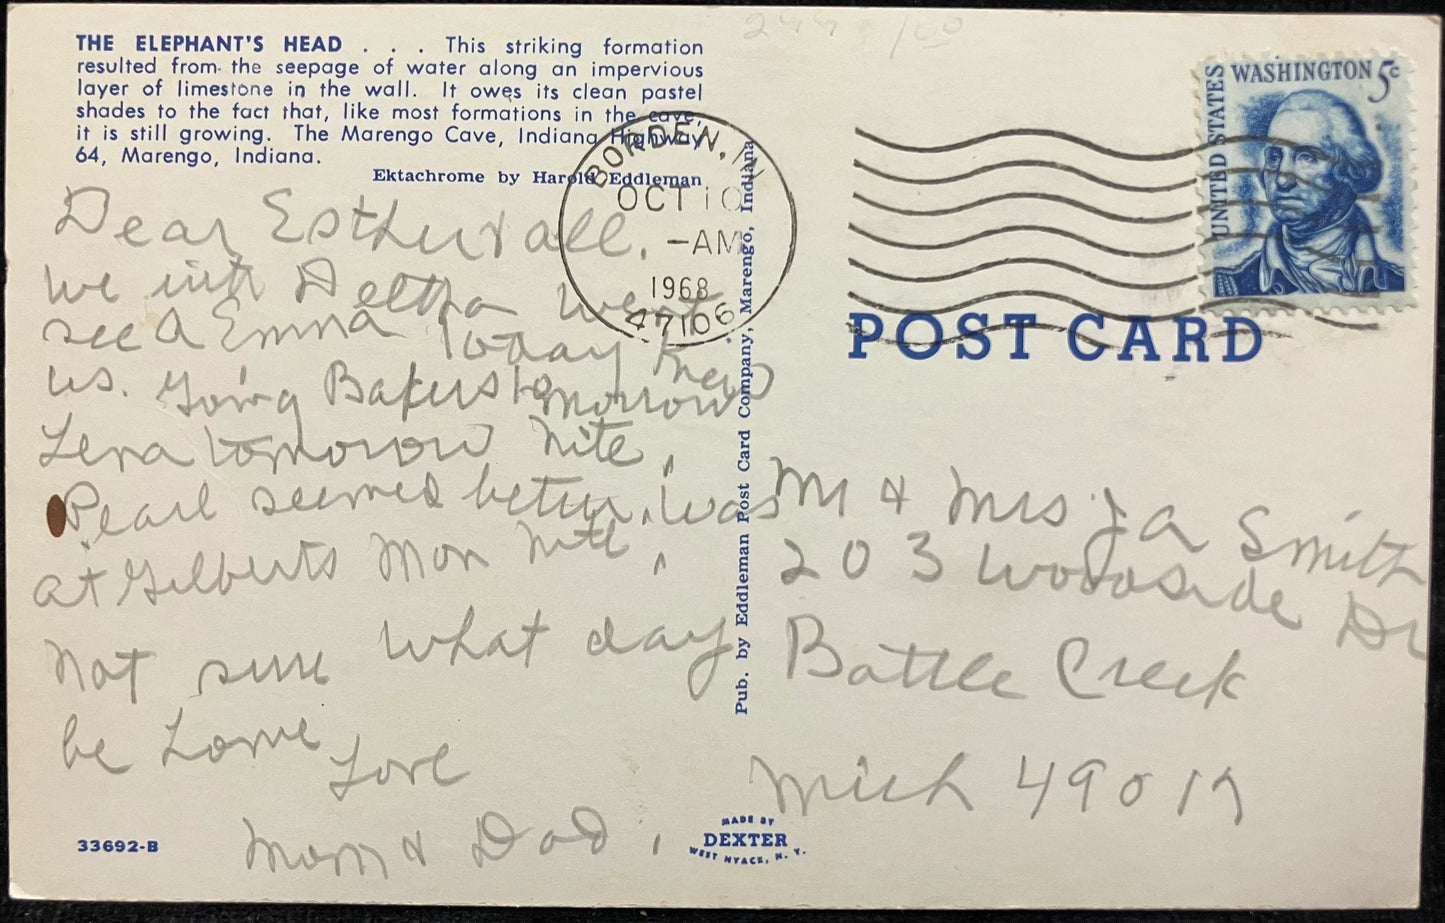 299 100
THE ELEPHANT'S HEAD . . . This striking formation
resulted from the seepage of water along an impervious
layer of limestone in the wall. It owes its clean pastel
shades to the fact that, like most formations in the cave,
it is still growing. The Marengo Cave, Indiana Highway
64, Marengo, Indiana.
Ektachrome by Harold Eddleman
Dear Esther & all.
we with Deltha went
see A Emma Today knew
us. Going Bakers tomorrow
Lena tomorrow nite,
Pearl seemed better, was
at Gilberts Mon nite,
Not sure what day
be home
Love
Mom & Dad.
33692-B
BORDEN, IN
OCT 10
-AM
1968
47106
Pub. by Eddleman Post Card Company, Marengo, Indiana
MADE BY
DEXTER
WEST NYACK, N. Y.
UNITED STATES
WASHINGTON 5c
POST CARD
Mr & Mrs J A Smith
203 Woodside Dr
Battle Creek
Mich 49017